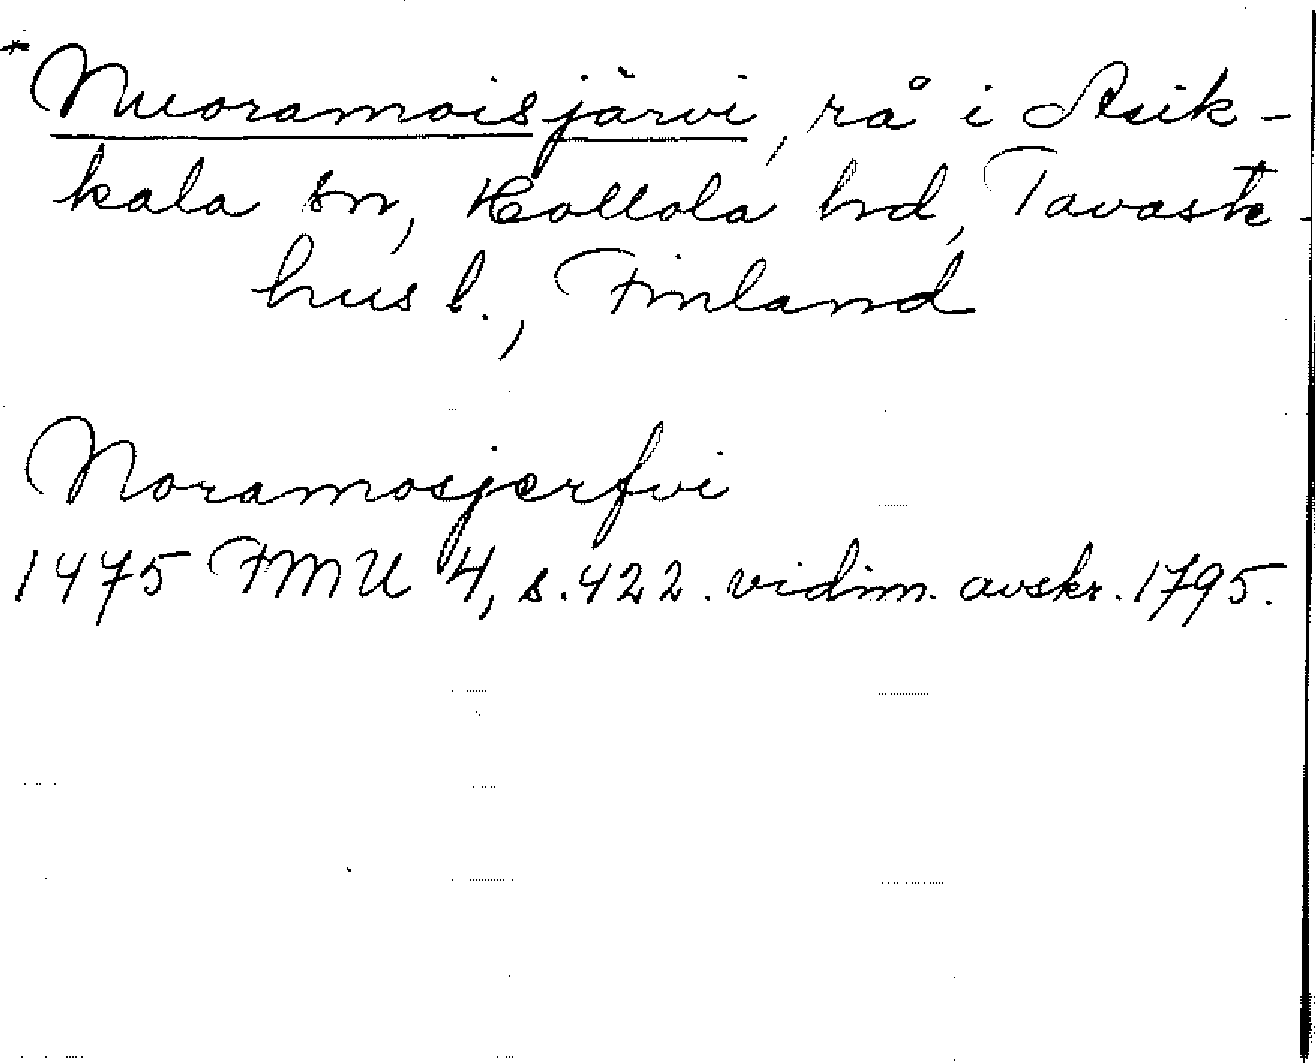 *Nuoramoisjärvi, rå i Asik-
kala sn, Hollola hd, Tavaste-
hus l., Finland
Noramosjerfvi
1475 FMU 4, s. 422. vidim. avskr. 1795.